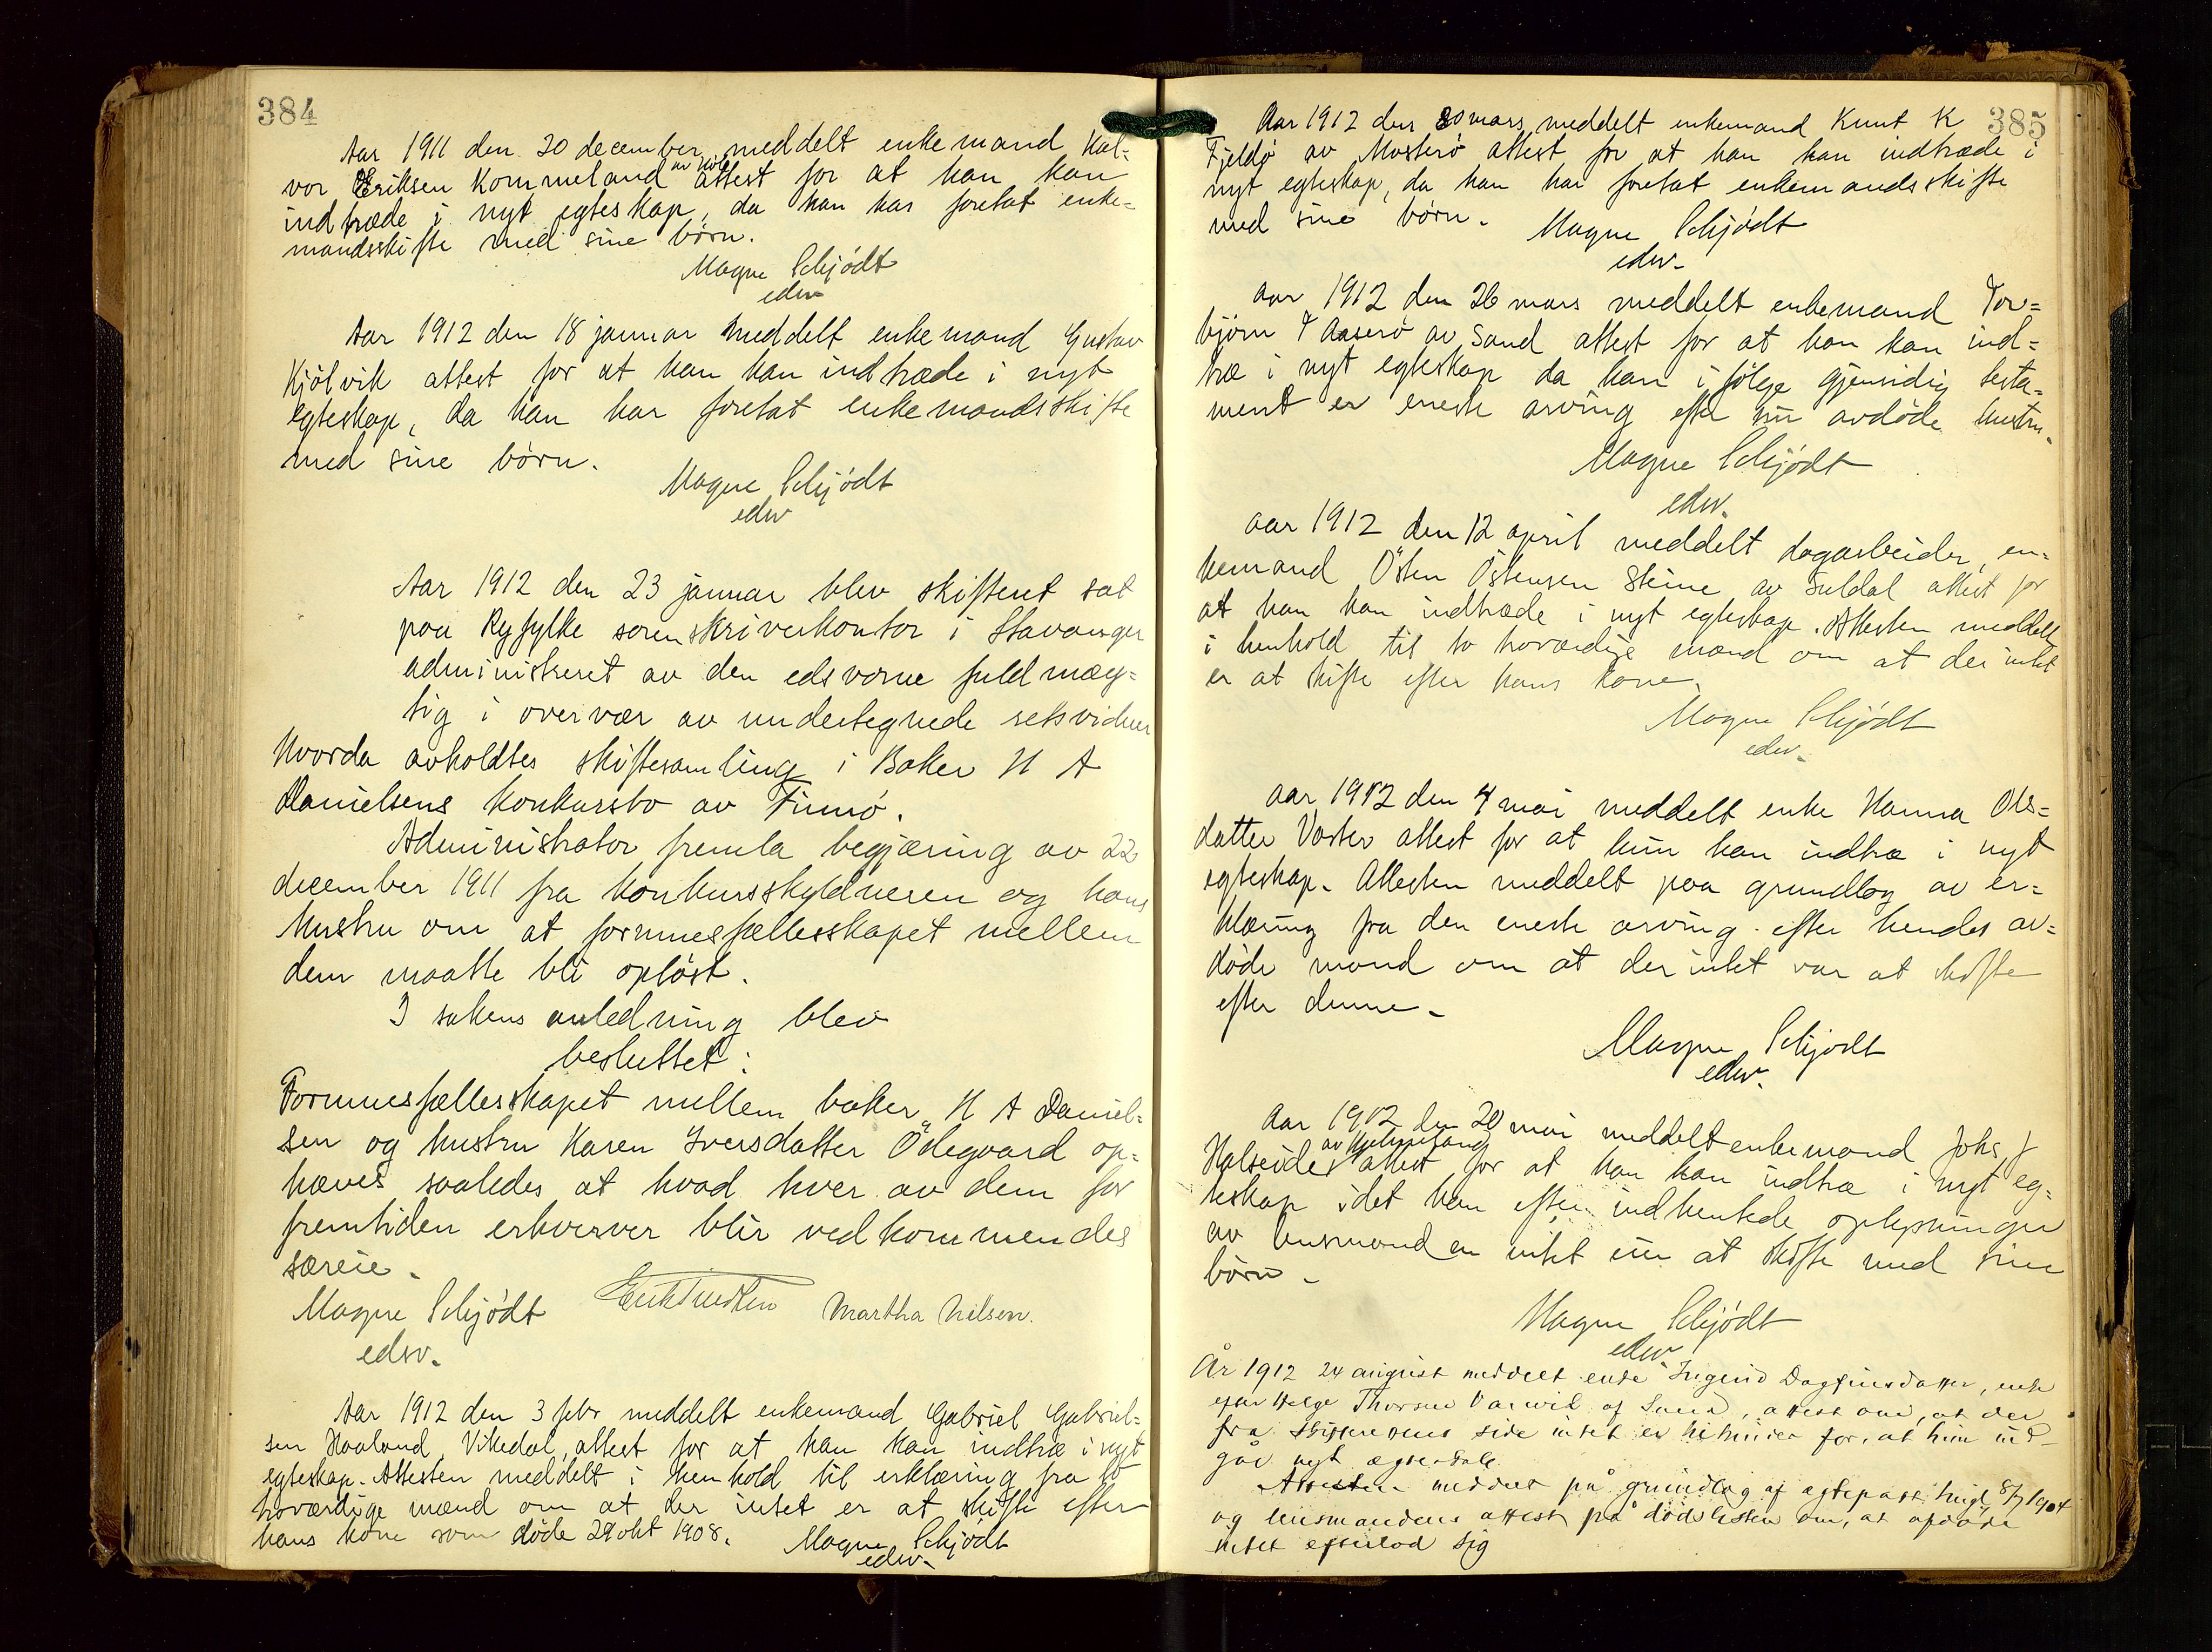 384
Aar 1911 den 20 december meddelt enkemand Hal=
vor Eriksen Kommeland attest for at han kan
indtræde i nyt egteskap, da han har foretat enke=
mandsskifte med sine børn.
Magne Schjödt
edsv.
Aar 1912 den 18 januar meddelt enkemand Gustav
Kjölvik attest for at han kan indtræde i nyt
egteskap, da han har foretat enkemandsskifte
med sine børn.
Magne Schjödt
edsv
Aar 1912 den 23 januar blev skifteret sat
paa Ryfylke sorenskriverkontor i Stavanger
administreret av den edsvorne fuldmæg=
tig i overvær av undertegnede retsvidner
Hvorda avholdtes skiftesamling i Baker H A
Danielsens konkursbo av Finnö.
Administrator fremla begjæring av 22
december 1911 fra konkursskyldneren og hans
hustru om at formuesfællesskapet mellem
dem maatte bli opløst.
I sakens anledning blev
besluttet:
Formuesfællesskapet mellem baker H A Daniel=
sen og hustru Karen Iversdatter Ödegaard op=
hæves saaledes at hvad hver av dem for
fremtiden erhverver blir vedkommendes
særeie.
Magne Schjödt
Martha Nilsen.
edsv.
Aar 1912 den 3 febr meddelt enkemand Gabriel Gabriel=
sen Haaland, Vikedal, attest for at han kan indtræ i nyt
egteskap. Attesten meddelt i henhold til erklæring fra to
troværdige mænd om at der intet er at skifte efter
hans kone som døde 29 okt 1908.
Magne Schjödt
edsv.
385
Aar 1912 den 20 mars meddelt enkemand Knut K
Fjeldö av Mosterö attest for at han kan indtræde i
nyt egteskap, da han har foretat enkemandsskifte
med sine børn.
Magne Schjödt
edsv.
Aar 1912 den 26 mars meddelt enkemand Tor=
björn T Aaserö av Sand attest for at han kan ind=
træ i nyt egteskap da han i følge gjensidig testa=
ment er eneste arving efter sin avdøde hustru.
Magne Schjödt
edsv.
Aar 1912 den 12 april meddelt dagarbeider, en=
kemand Östen Östensen Steine av Suldal attest for
at han kan indtræde i nyt egteskap. Attesten meddelt
i henhold til to troværdige mænd om at der intet
er at skifte efter hans kone.
Magne Schjödt
edsv.
Aar 1912 den 4 mai meddelt enke Hanna Ols=
datter attest for at hun kan indtræ i nyt
egteskap. Attesten meddelt paa grundlag av er=
klæring fra den eneste arving efter hendes av=
døde mand om at der intet var at skifte
efter denne.
Magne Schjödt
edsv.
Aar 1912 den 20 mai meddelt enkemand Johs J
av Hjelmeland
Halseide attest for at han kan indtræ i nyt eg=
teskap idet han efter indhentede oplysninger
av lensmanden intet har at skifte med sine
børn.
Magne Schjödt
edsv.
År 1912 24 august meddelt enke Ingerid Dagfinsdatter, enke
efter Helge Thorsen af Sand, attest om, at der
fra skifterettens side intet er til hinder for, at hun ind-
går nyt ægteskab.
Attesten meddelt på grundlag af ægtepagt tingl. 8/7 1904
og lensmandens attest på dødslisten om, at afdøde
intet efterlod sig